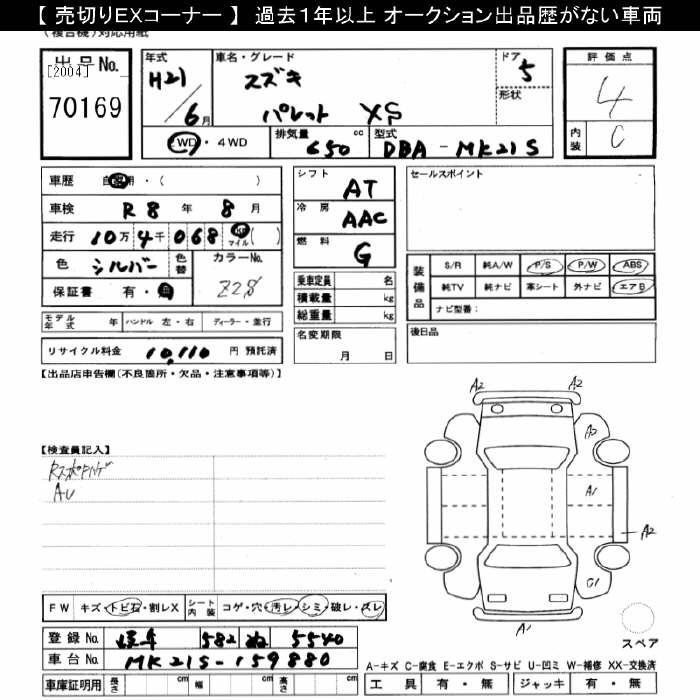 【 売切りEXコーナー 】 過去１年以上 オークション出品歴がない車両
(複合機)対応用紙
出品No. [2004] 70169
年式 H21/6月
車名・グレード スズキ パレット XS
ドア 5
形状
評価点 4
内装 C
2WD・4WD
排気量 650 cc
型式 DBA-MK21S
車歴 自家用・( )
車検 R8年 8月
走行 10万4千068 km マイル( )
色 シルバー 色替
カラーNo. Z2S
保証書 有・無
モデル年式 年 ハンドル 左・右 ディーラー・並行
リサイクル料金 10,110 円 預託済
シフト AT
冷房 AAC
燃料 G
乗車定員 名
積載量 kg
総重量 kg
名変期限 月 日
セールスポイント
装備品 S/R 純A/W P/S P/W ABS
純TV 純ナビ 革シート 外ナビ エアB
ナビ型番:
後日品
【出品店申告欄(不良箇所・欠品・注意事項等)】
【検査員記入】
AU
A2 A2
A2
A1
A2
G1
A1
スペア
FW キズ・トビ石・割レX シート内装 コゲ・穴・汚レ・シミ・破レ・スレ
登録No. 岐阜 582 ぬ 5540
車台No. MK21S-159880
車庫証明用 長さ cm 幅 cm 高さ cm
A-キズ C-腐食 E-エクボ S-サビ U-凹ミ W-補修 XX-交換済
工具 有・無 ジャッキ 有・無